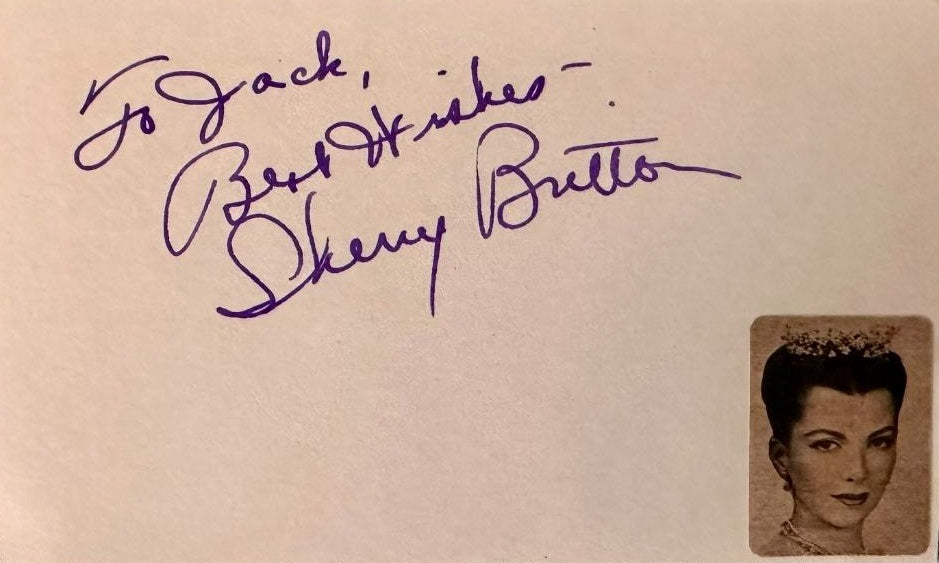 To Jack,
Best Wishes -
Sherry Britton